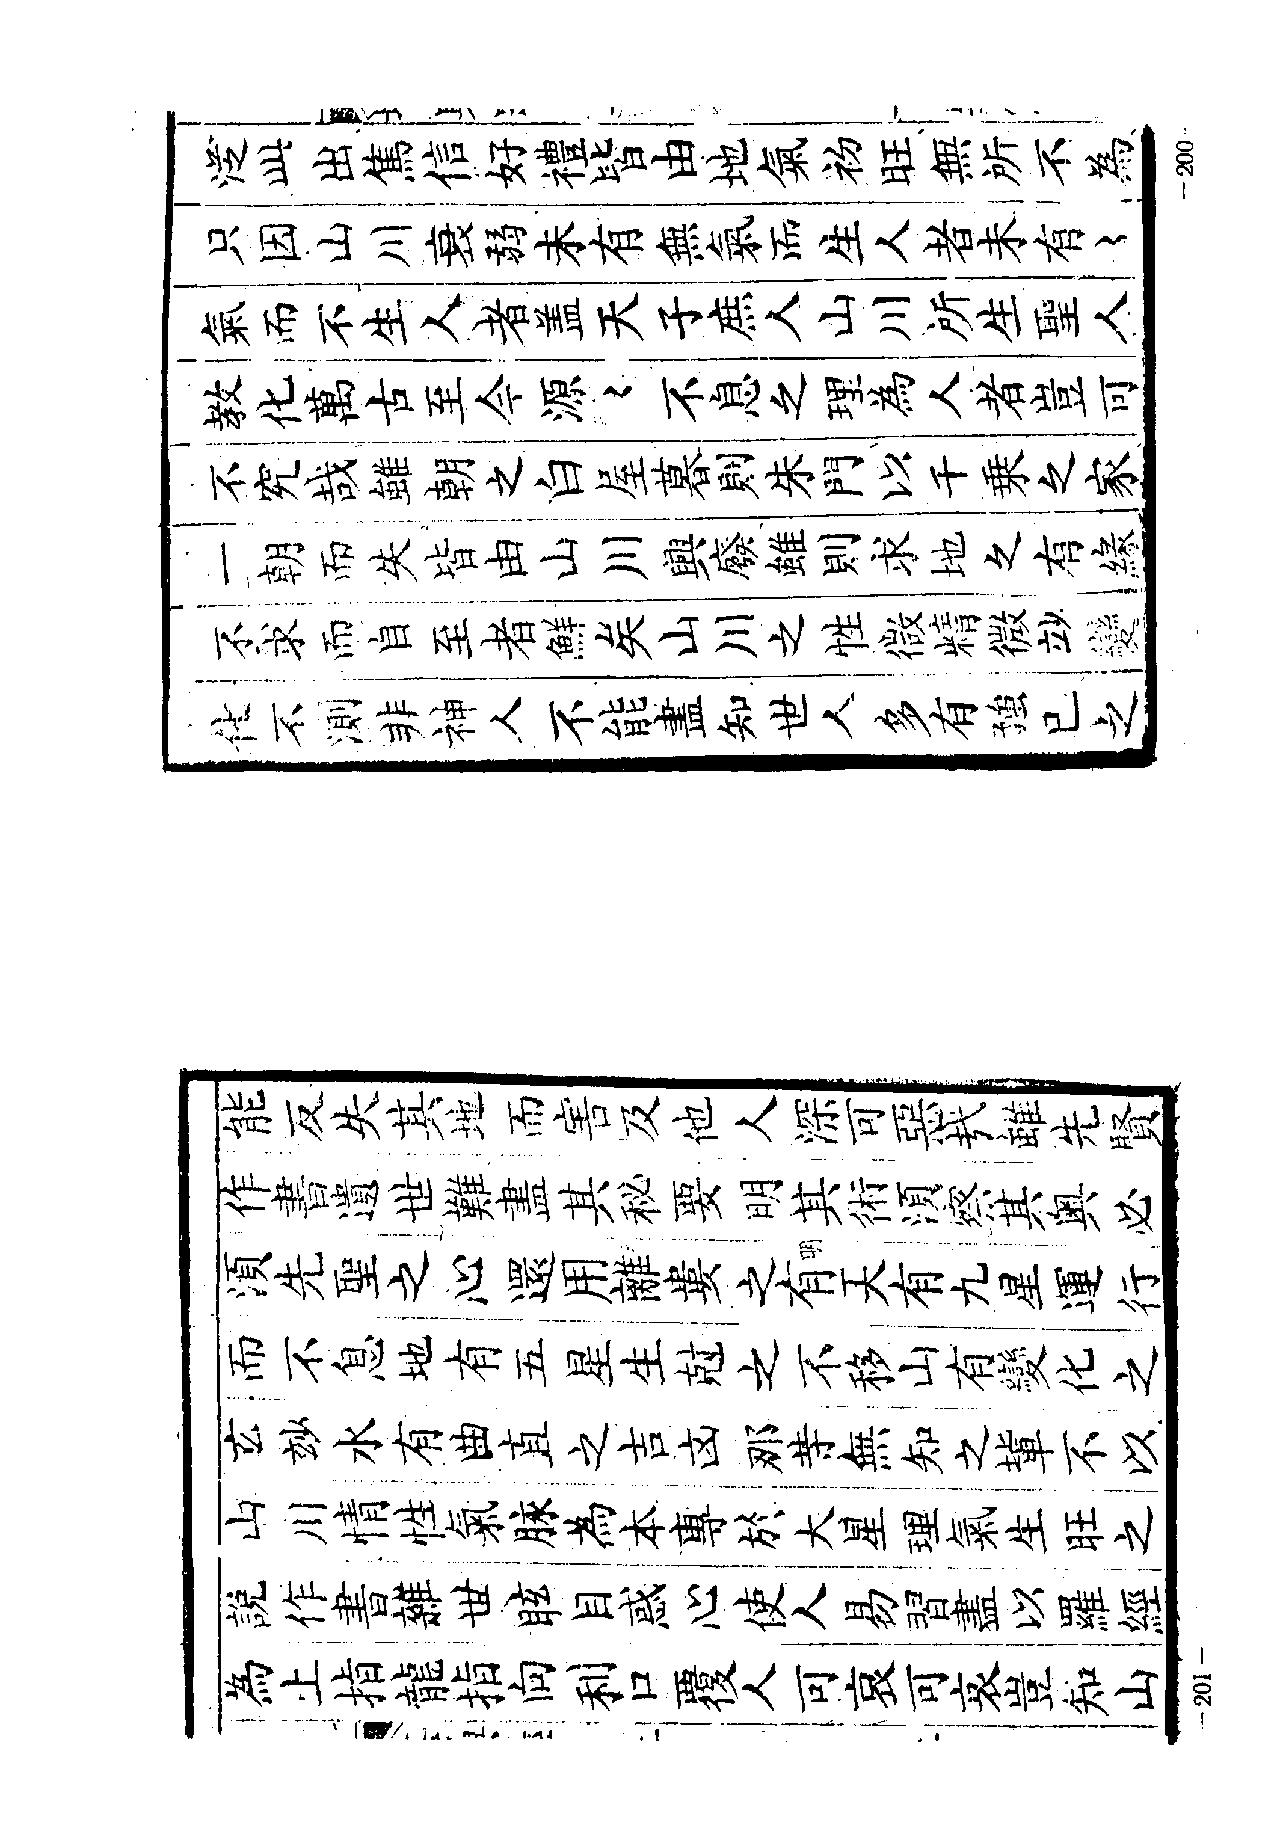 泛此出篤信好禮皆由地氣初旺無所不為
只因山川衰弱未有無氣而生人者未有〻
氣而不生人者盖天子庶人山川所生聖人
教化萬古至今源〻不息之理為人者豈可
不究哉雖朝之白屋暮則朱門以千乗之家
一朝而失皆由山川興廢雖則求地之有緣
不求而自至者鮮矣山川之性微精微玅變
化不測非神人不能盡知世人多有強已之
-200-
能反失其地而害及他人深可惡哉雖先賢
作書遺世難盡其秘要明其術須察其奥必
須先聖之心還用離婁之明有天有九星運行
而不息地有五星生尅之不移山有變化之
玄玅水有曲直之吉凶那等無知之輩不以
山川情性氣脉為本專於大星理氣生旺之
說作書雜世眩目惑心使人易習盡以羅經
為上指龍指向利口覆人可哀可哀豈知山
-201-